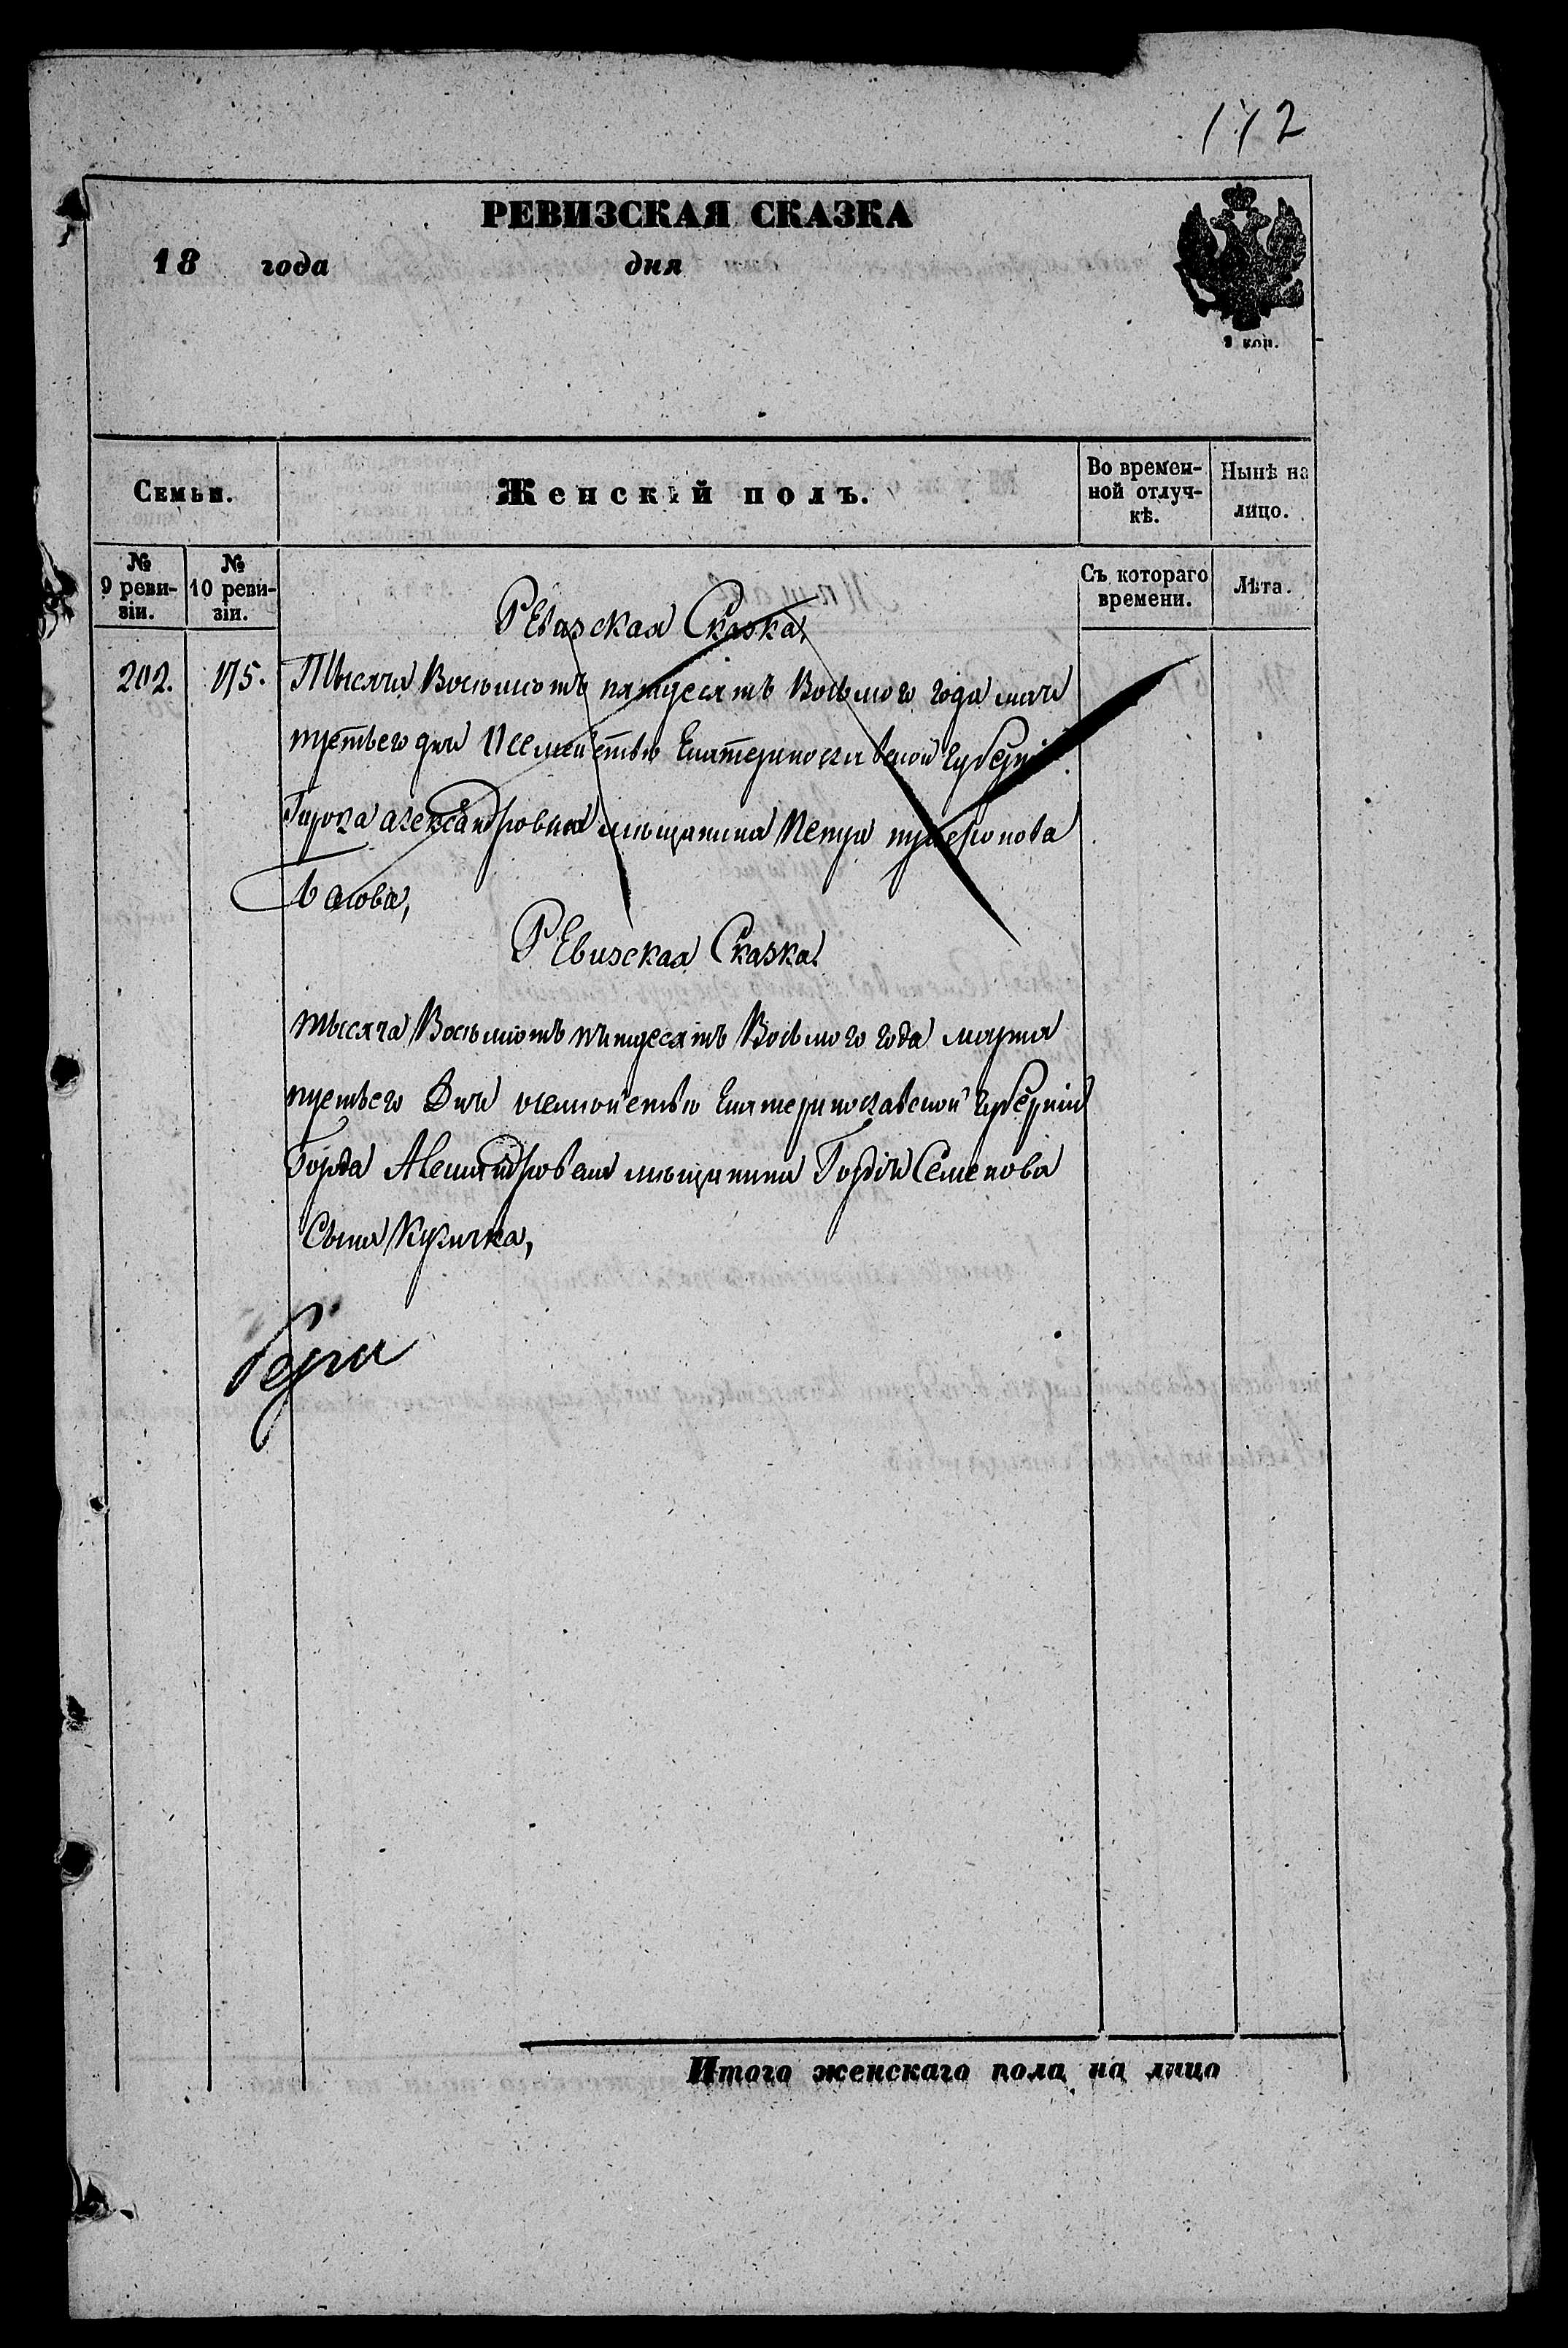 172
РЕВИЗСКАЯ СКАЗКА
18 года дня
Семьи.
Женскій полъ.
Во времен-
ной отлуч-
кѣ.
Нынѣ на
лицо.
№
9 реви-
зіи.
№
10 реви-
зіи.
Съ котораго
времени.
Лѣта.
Ревизская Сказка,
202. 175. Тысяча Восьмсотъ пятдесятъ Восьмого года
третьего дня Екатеринославской Губерніи
Города александровска мещанина Петра
Ревизская Сказка.
тысяча Восьмсотъ пятдесятъ Восьмого года марта
третьего Дня Екатеринославской Губерніи
Города мещанина Гордія Семенова
Сына
Итого женскаго пола на лицо